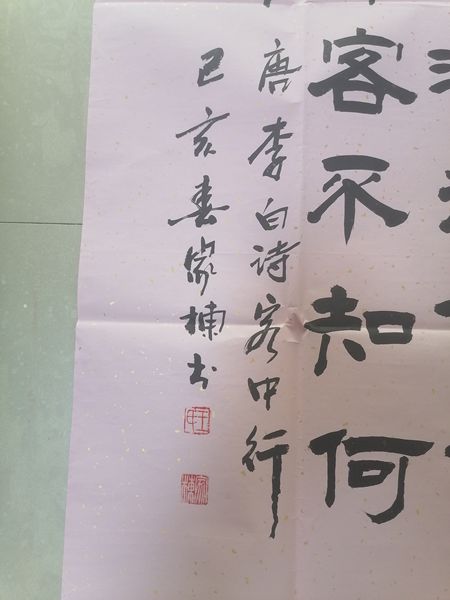 客不知何
唐李白诗客中行
己亥春家楠书